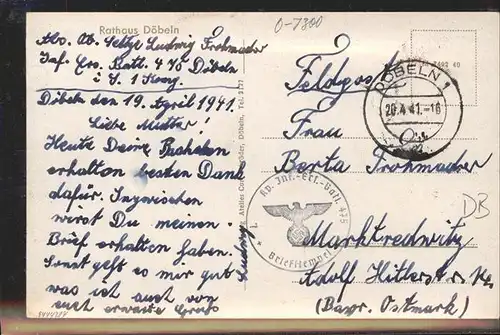 Rathaus Döbeln
O-7300
Abs. Ob. Schtze Ludwig Frohmader
Inf. Ers. Batl. 475 Döbeln
i. S. 1 Komp.
Döbeln den 19. April 1941.
Liebe Mutter!
Heute Deine Päckchen
erhalten besten Dank
dafür. Inzwischen
wirst Du meinen
Brief erhalten haben.
Sonst geht es mir gut
was ich auch von
euch erwarte Gruß
Ludwig
Feldpost
Frau
Berta Frohmader
Marktredwitz
Adolf Hitlerstr.
(Bayr. Ostmark)
DÖBELN 1
20.4.41.-18
Inf.-Ers.-Batl. 475
Briefstempel
DB